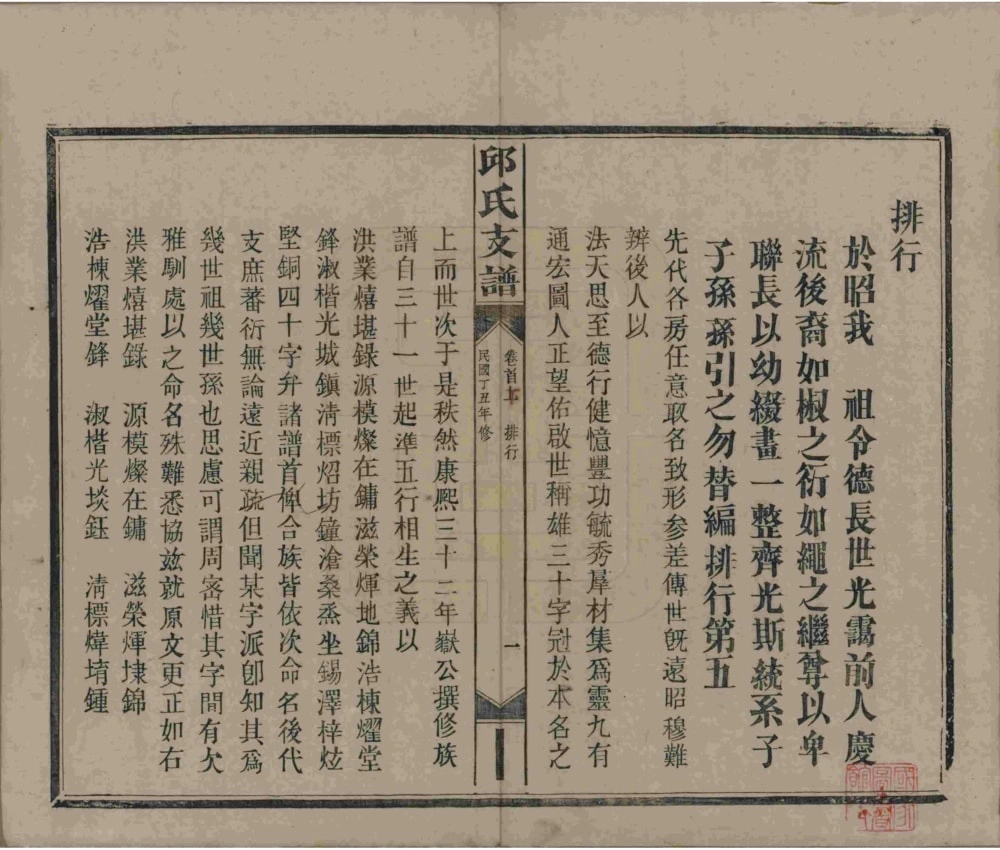 排行
於昭我　祖令德長世光靄前人慶
流後裔如椒之衍如繩之繼尊以卑
聯長以幼綴畫一整齊光斯統系子
子孫孫引之勿替編排行第五
先代各房任意取名致形參差傳世旣遠昭穆難
辨後人以
法天思至德行健憶豐功毓秀羣材集爲靈九有
通宏圖人正望佑啟世稱雄三十字冠於本名之
邱氏支譜
卷首上　排行
一
民國丁丑年修
上而世次于是秩然康熙三十二年嶽公撰修族
譜自三十一世起準五行相生之義以
洪業熺堪錄源模燦在鏞滋榮煇地錦浩棟燿堂
鋒淑楷光城鎭淸標炤坊鐘滄桑烝坐錫澤梓炫
堅銅四十字弁諸譜首俾合族皆依次命名後代
支庶蕃衍無論遠近親疏但聞某字派卽知其爲
幾世祖幾世孫也思慮可謂周宻惜其字間有欠
雅馴處以之命名殊難悉協兹就原文更正如右
洪業熺堪錄　源模燦在鏞　滋榮煇埭錦
浩棟燿堂鋒　淑楷光埮鈺　淸標煒堉鍾